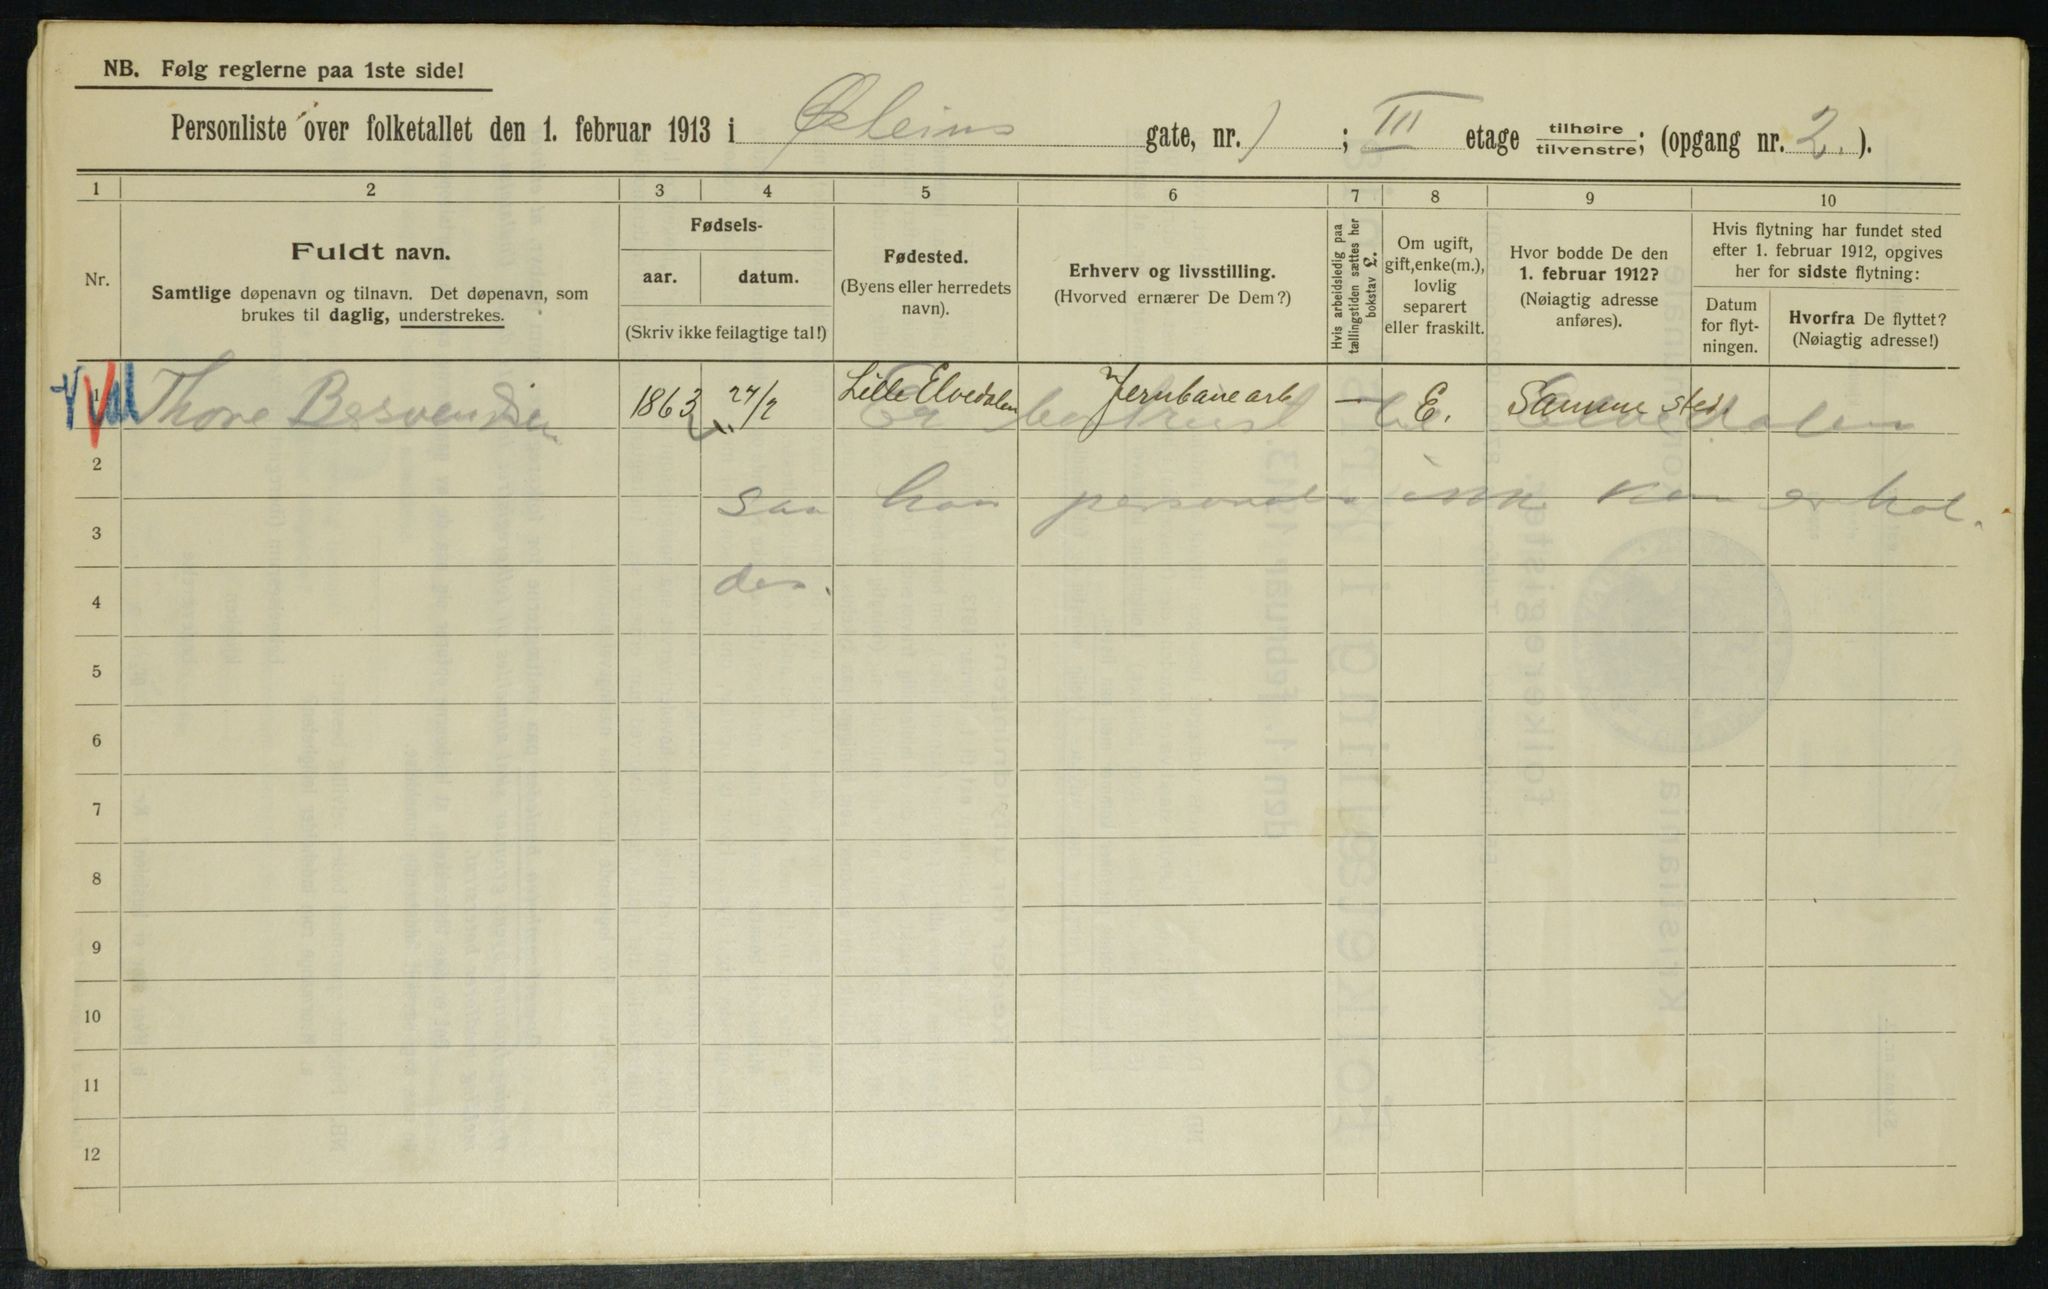 NB. Følg reglerne paa 1ste side!
Personliste over folketallet den 1. februar 1913 i Øxleins gate, nr. 1 ; III etage tilhøire/tilvenstre; (opgang nr. 2.).
1 2 3 4 5 6 7 8 9 10
Nr.
Fuldt navn.
Samtlige døpenavn og tilnavn. Det døpenavn, som
brukes til daglig, understrekes.
Fødsels-
aar. datum.
(Skriv ikke feilagtige tal!)
Fødested.
(Byens eller herredets
navn).
Erhverv og livsstilling.
(Hvorved ernærer De Dem?)
Hvis arbeidsledig paa
tællingstiden sættes her
bokstav L.
Om ugift,
gift, enke(m.),
lovlig
separert
eller fraskilt.
Hvor bodde De den
1. februar 1912?
(Nøiagtig adresse
anføres).
Hvis flytning har fundet sted
efter 1. februar 1912, opgives
her for sidste flytning:
Datum
for flyt-
ningen.
Hvorfra De flyttet?
(Nøiagtig adresse!)
1 Thore 1863 24/2 Lille Elvedalen Jernbanearb — E. Samme sted.
Er bortreist til Elvedalen
2
saa han personal ikke kan erhol-
3
des.
4
5
6
7
8
9
10
11
12